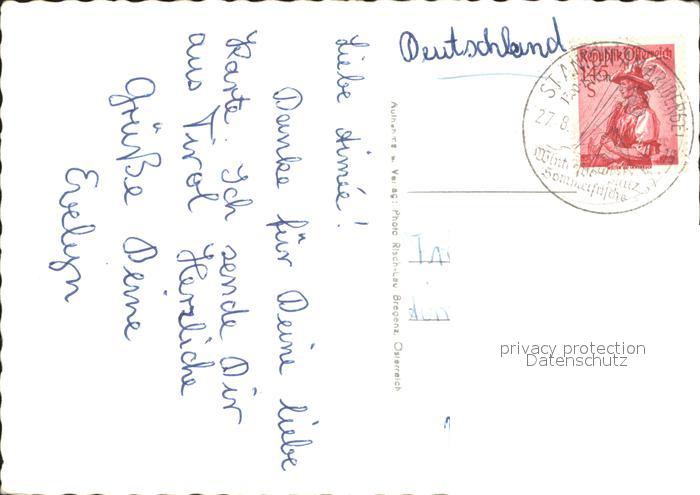 Liebe Aimée!
Danke für Deine liebe
Karte. Ich sende Dir
aus Tirol Herzliche
Grüße Deine
Evelyn
Deutschland
Republik Österreich
S
ST. ANTON
27.8.
Sommerfrische
Aufnahme u. Verlag: Photo Risch-Lau Bregenz, Österreich
privacy protection
Datenschutz